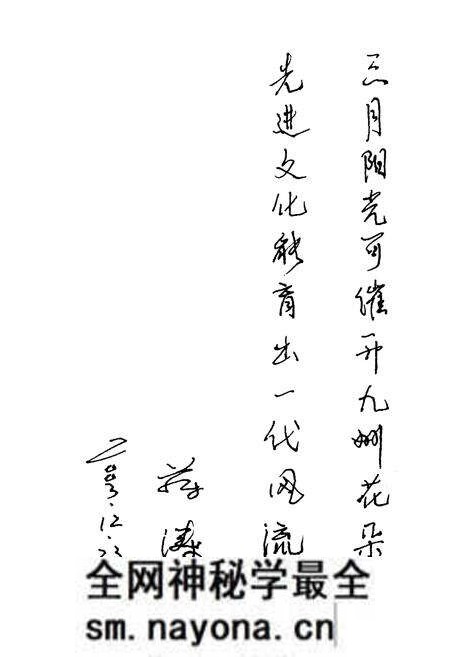 三月阳光可催开九州花朵
先进文化能育出一代风流
全网神秘学最全
sm.nayona.cn